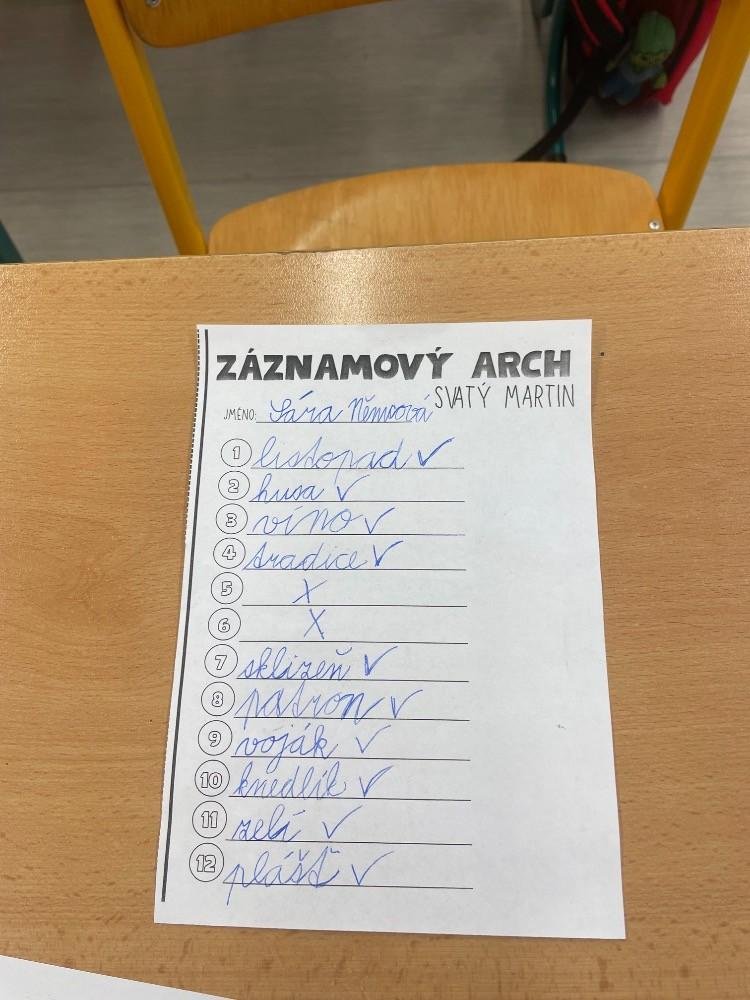 ZÁZNAMOVÝ ARCH
SVATÝ MARTIN
JMÉNO: Sára Němcová
1 listopad ✓
2 husa ✓
3 víno ✓
4 tradice ✓
5 X
6 X
7 sklizeň ✓
8 patron ✓
9 voják ✓
10 knedlík ✓
11 zelí ✓
12 plášť ✓